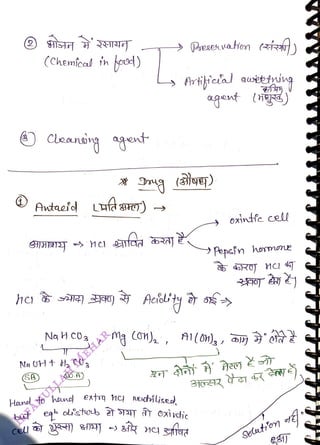 ② भोजन में रसायन → Preservation (संरक्षी)
(Chemical in food) → Artificial sweetning
agent (कृत्रिम मधुरक)
③ Cleansing agent
* Drug (औषध)
① Antacid (प्रतिअम्ल) →
आमाशय → HCl स्रावित करता है → oxintic cell
→ Pepsin hormone
के कारण HCl का
स्रवण होता है।
HCl के ज्यादा स्रवण से Acidity हो गई →
NaHCO3, Mg(OH)2, Al(OH)3, काम में लेते है
NaOH + H2CO3
(SB) (WA)
इन दोनों में मेटल है जो
अल्सर पैदा कर देता है
Hand to hand extra HCl neutilised
but eqb disturb हो गया तो oxintic
cell को गुस्सा आया → और HCl स्रावित
solution नहीं
हुआ